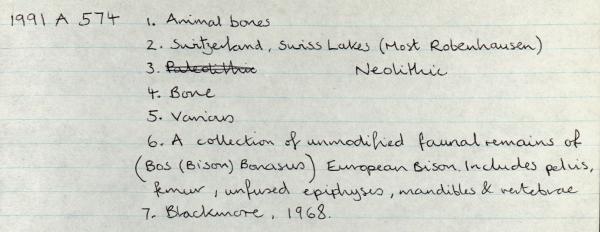 1991 A 574 1. Animal bones
2. Switzerland, Swiss Lakes (Most Robenhausen)
3. Paleolithic Neolithic
4. Bone
5. Various
6. A collection of unmodified faunal remains of
(Bos (Bison) Bonasus) European Bison. Includes pelvis,
femur, unfused epiphyses, mandibles & vertebrae
7. Blackmore, 1968.